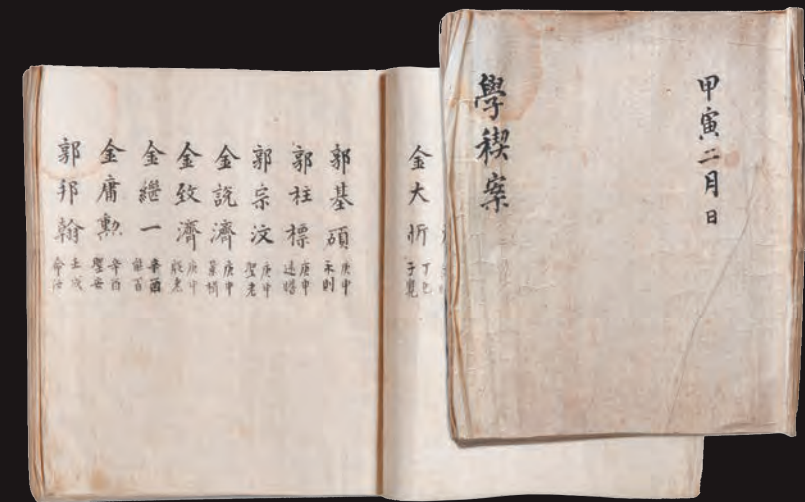 甲寅二月日
學稧案
金大
丁巳
子覺
郭基碩
庚申
永則
郭柱標
庚申
郭宗汶
庚申
聖老
金說濟
庚申
金致濟
庚申
金繼一
辛酉
金庸勲
辛酉
聖安
郭邦翰
壬戌